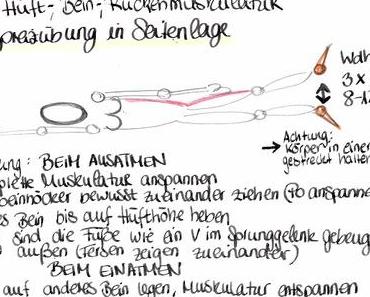 Hüft-, Bein-, Rückenmuskulatur
übung in Seitenlage
3 x
8-1
Achtung:
Körper in einer
gestreckt halten
ung: BEIM AUSATMEN
Muskulatur anspannen
beinhöcker bewusst zueinander ziehen (Po anspanne
es Bein bis auf Hüfthöhe heben
sind die Füße wie ein V im Sprunggelenk gebeug
außen (Fersen zeigen zueinander)
BEIM EINATMEN
auf anderes Bein legen, Muskulatur entspannen